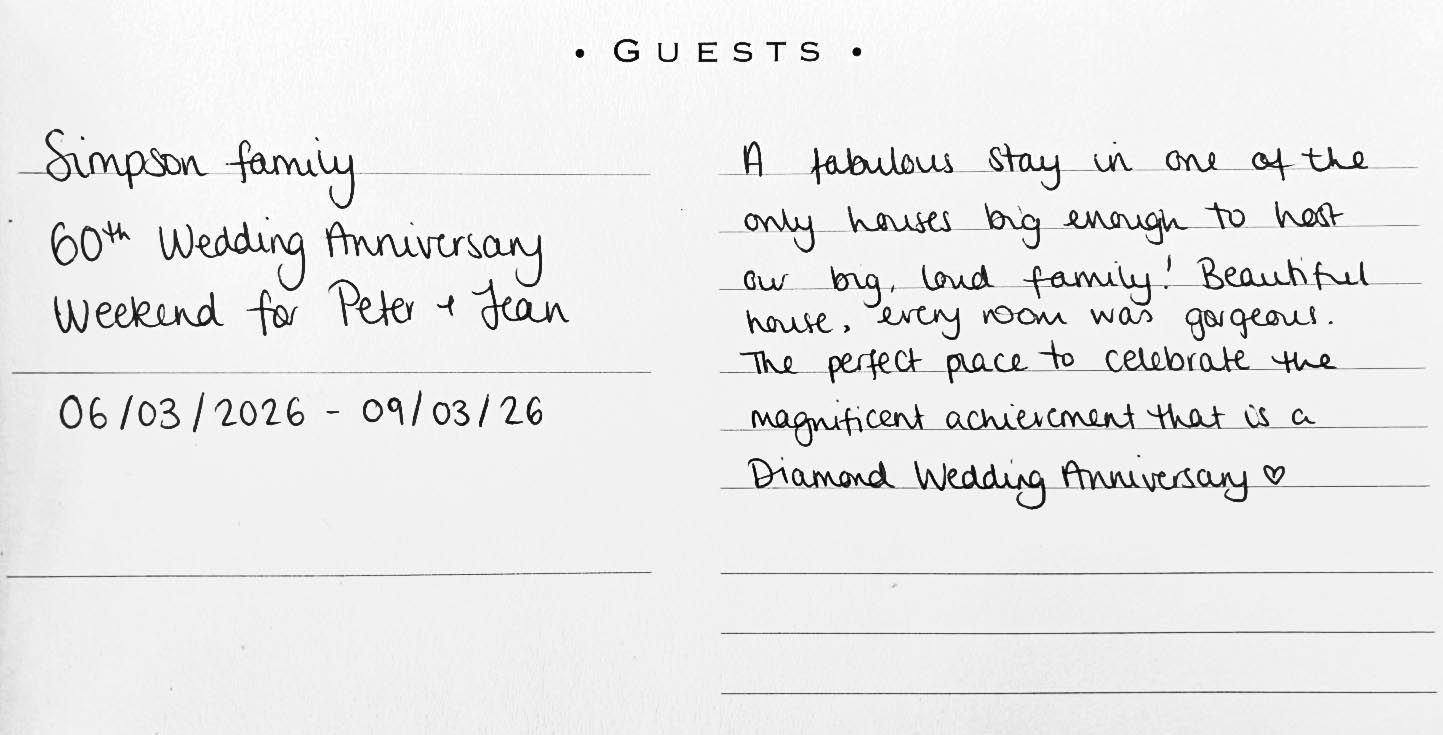 • GUESTS •
Simpson family
60th Wedding Anniversary
Weekend for Peter + Jean
06/03/2026 - 09/03/26
A fabulous stay in one of the
only houses big enough to host
our big, loud family! Beautiful
house, every room was gorgeous.
The perfect place to celebrate the
magnificent achievement that is a
Diamond Wedding Anniversary ♡